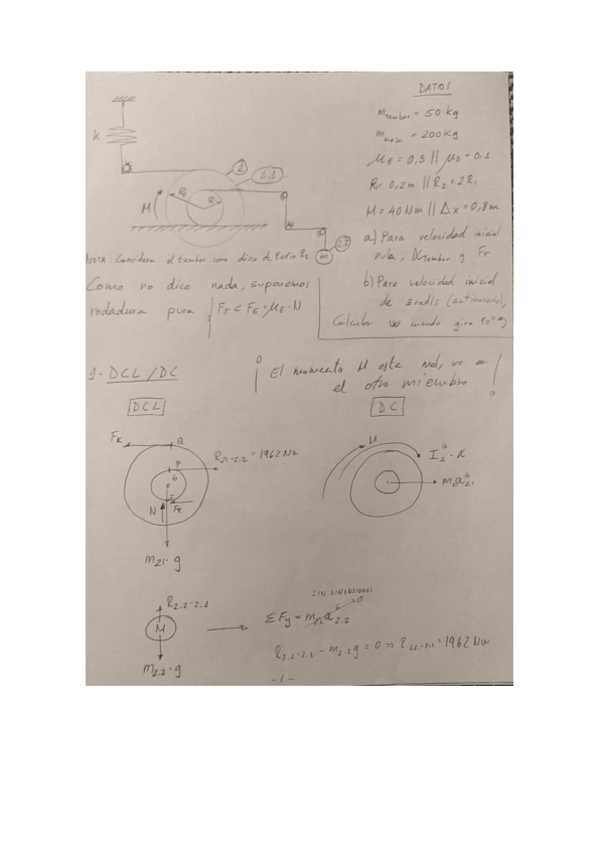 DATOS
m tambor = 50 kg
m masa = 200 kg
μE = 0,3 // μD = 0.1
R1 = 0,2m // R2 = 2R1
M = 40 Nm // Δx = 0,8m
a) Para velocidad inicial
nula, y Fr
b) Para velocidad inicial
de 2 rad/s (antihorario),
Calcular ω cuando gira 90°
k
2
2.1
R2
R1
M
2.2
m
NOTA: Considera el tambor como disco de Radio R2
Como no dice nada, suponemos
rodadura pura | Fr < FE = μE · N
1- DCL / DC
¡ El momento M este mal, va en
el otro miembro !
DCL
DC
Fk
Q
R2.1-2.2 = 1962 N
P
G
I
N
Fr
m2.1 · g
M
I G 2 · α
m a G 2.1
R2.2-2.1
M
m2.2 · g
ΣFy = m a G 2.2
0
R2.2-2.1 - m2.2 g = 0 => R2.2-2.1 = 1962 N
-1-